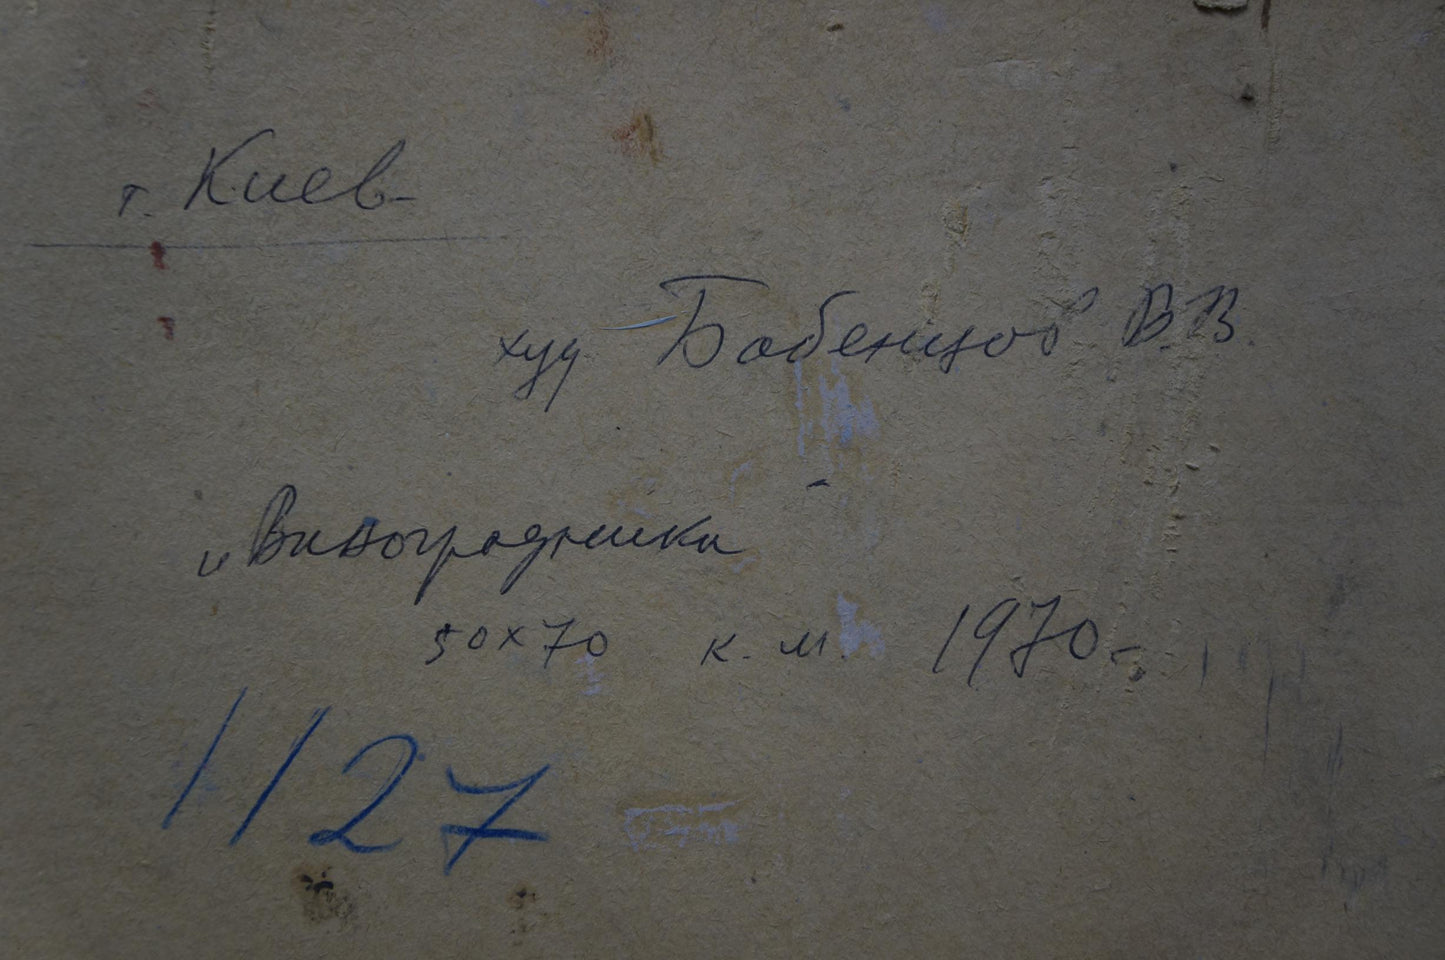 г. Киев
худ Бабенцов В.В.
„Виноградники
50х70 к. м. 1970-
1127